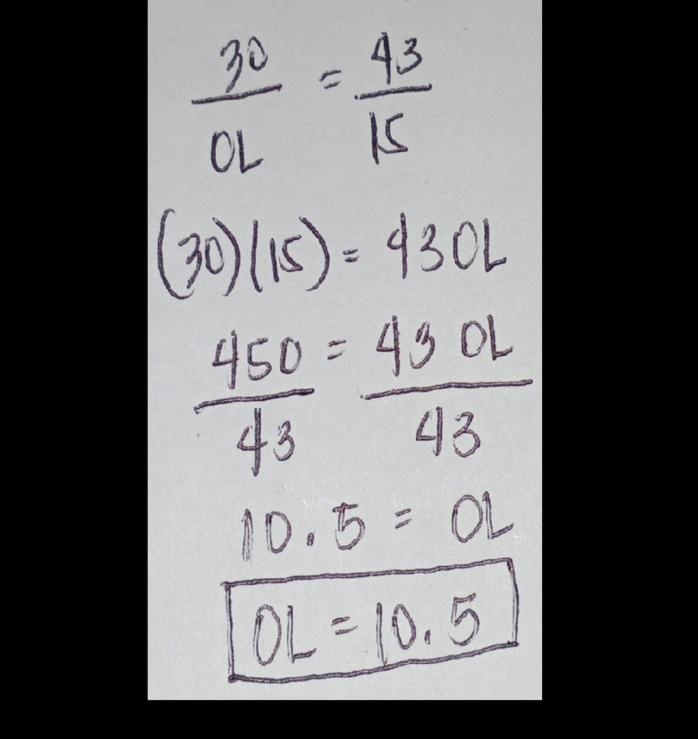 30/OL = 43/15
(30)(15) = 43OL
450/43 = 43 OL/43
10.5 = OL
OL = 10.5